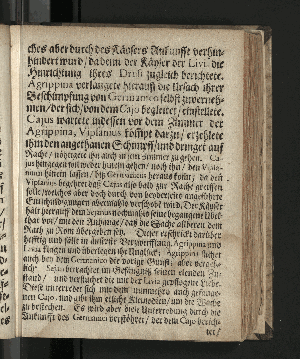 ches aber durch des Käysers Ankunfft verhin-
hindert wird / da denn der Käyser der Livi. die
Hinrichtung ihres Drusi zugleich berichtete.
Agrippina verlangete hierauff die Ursach ihrer
Beschimpfung von Germanien selbst zuverneh-
men / der sich / von dem Cajo begleitet / einstellete.
Cajus wartete indessen vor dem Zimmer der
Agrippina, Vipsanius kommt darzu / erzehlete
ihm den angethanen Schimpff / und dringet auf
Rache / nöhtigete ihn auch in sein Zimmer zu gehen. Ca-
jus hingegen
nium hinein lassen / biß Germanicus heraus kommt / da denn
Vipsanius begehret daß Cajus also bald zur Rache greiffen
solte / welches aber doch durch von beyderseits angeführte
Entschuldigungen abermahls verschoben wird. Der Käyser
hält hierauff dem Sejanus nochmahls seine begangene Übel-
that vor / mit dem Anhange / daß die Sache allbereit dem
Rath zu Rom übergeben sey. Dieser erschrickt darüber
hefftig und fällt in äuserste Verzweifflung. Agrippina und
Livia klagen und überlegen ihr Unglück; Agrippina suchet
auch bey dem Germanico der vorige Gunst / aber vergeb-
lich: Sejanus betrachtet im Gefängniß seinen elenden Zu-
stand / und verfluchet die mit der Livia gepflogene Liebe.
Diese unterredet sich mit dem nunmehro auch gefange-
nen Cajo, und gibt ihm etliche Kleinodien / um die Wache
zu bestechen. Es wird aber diese Unterredung durch die
Ankunfft des Germanici verstöhret / der dem Cajo berich-
tet /